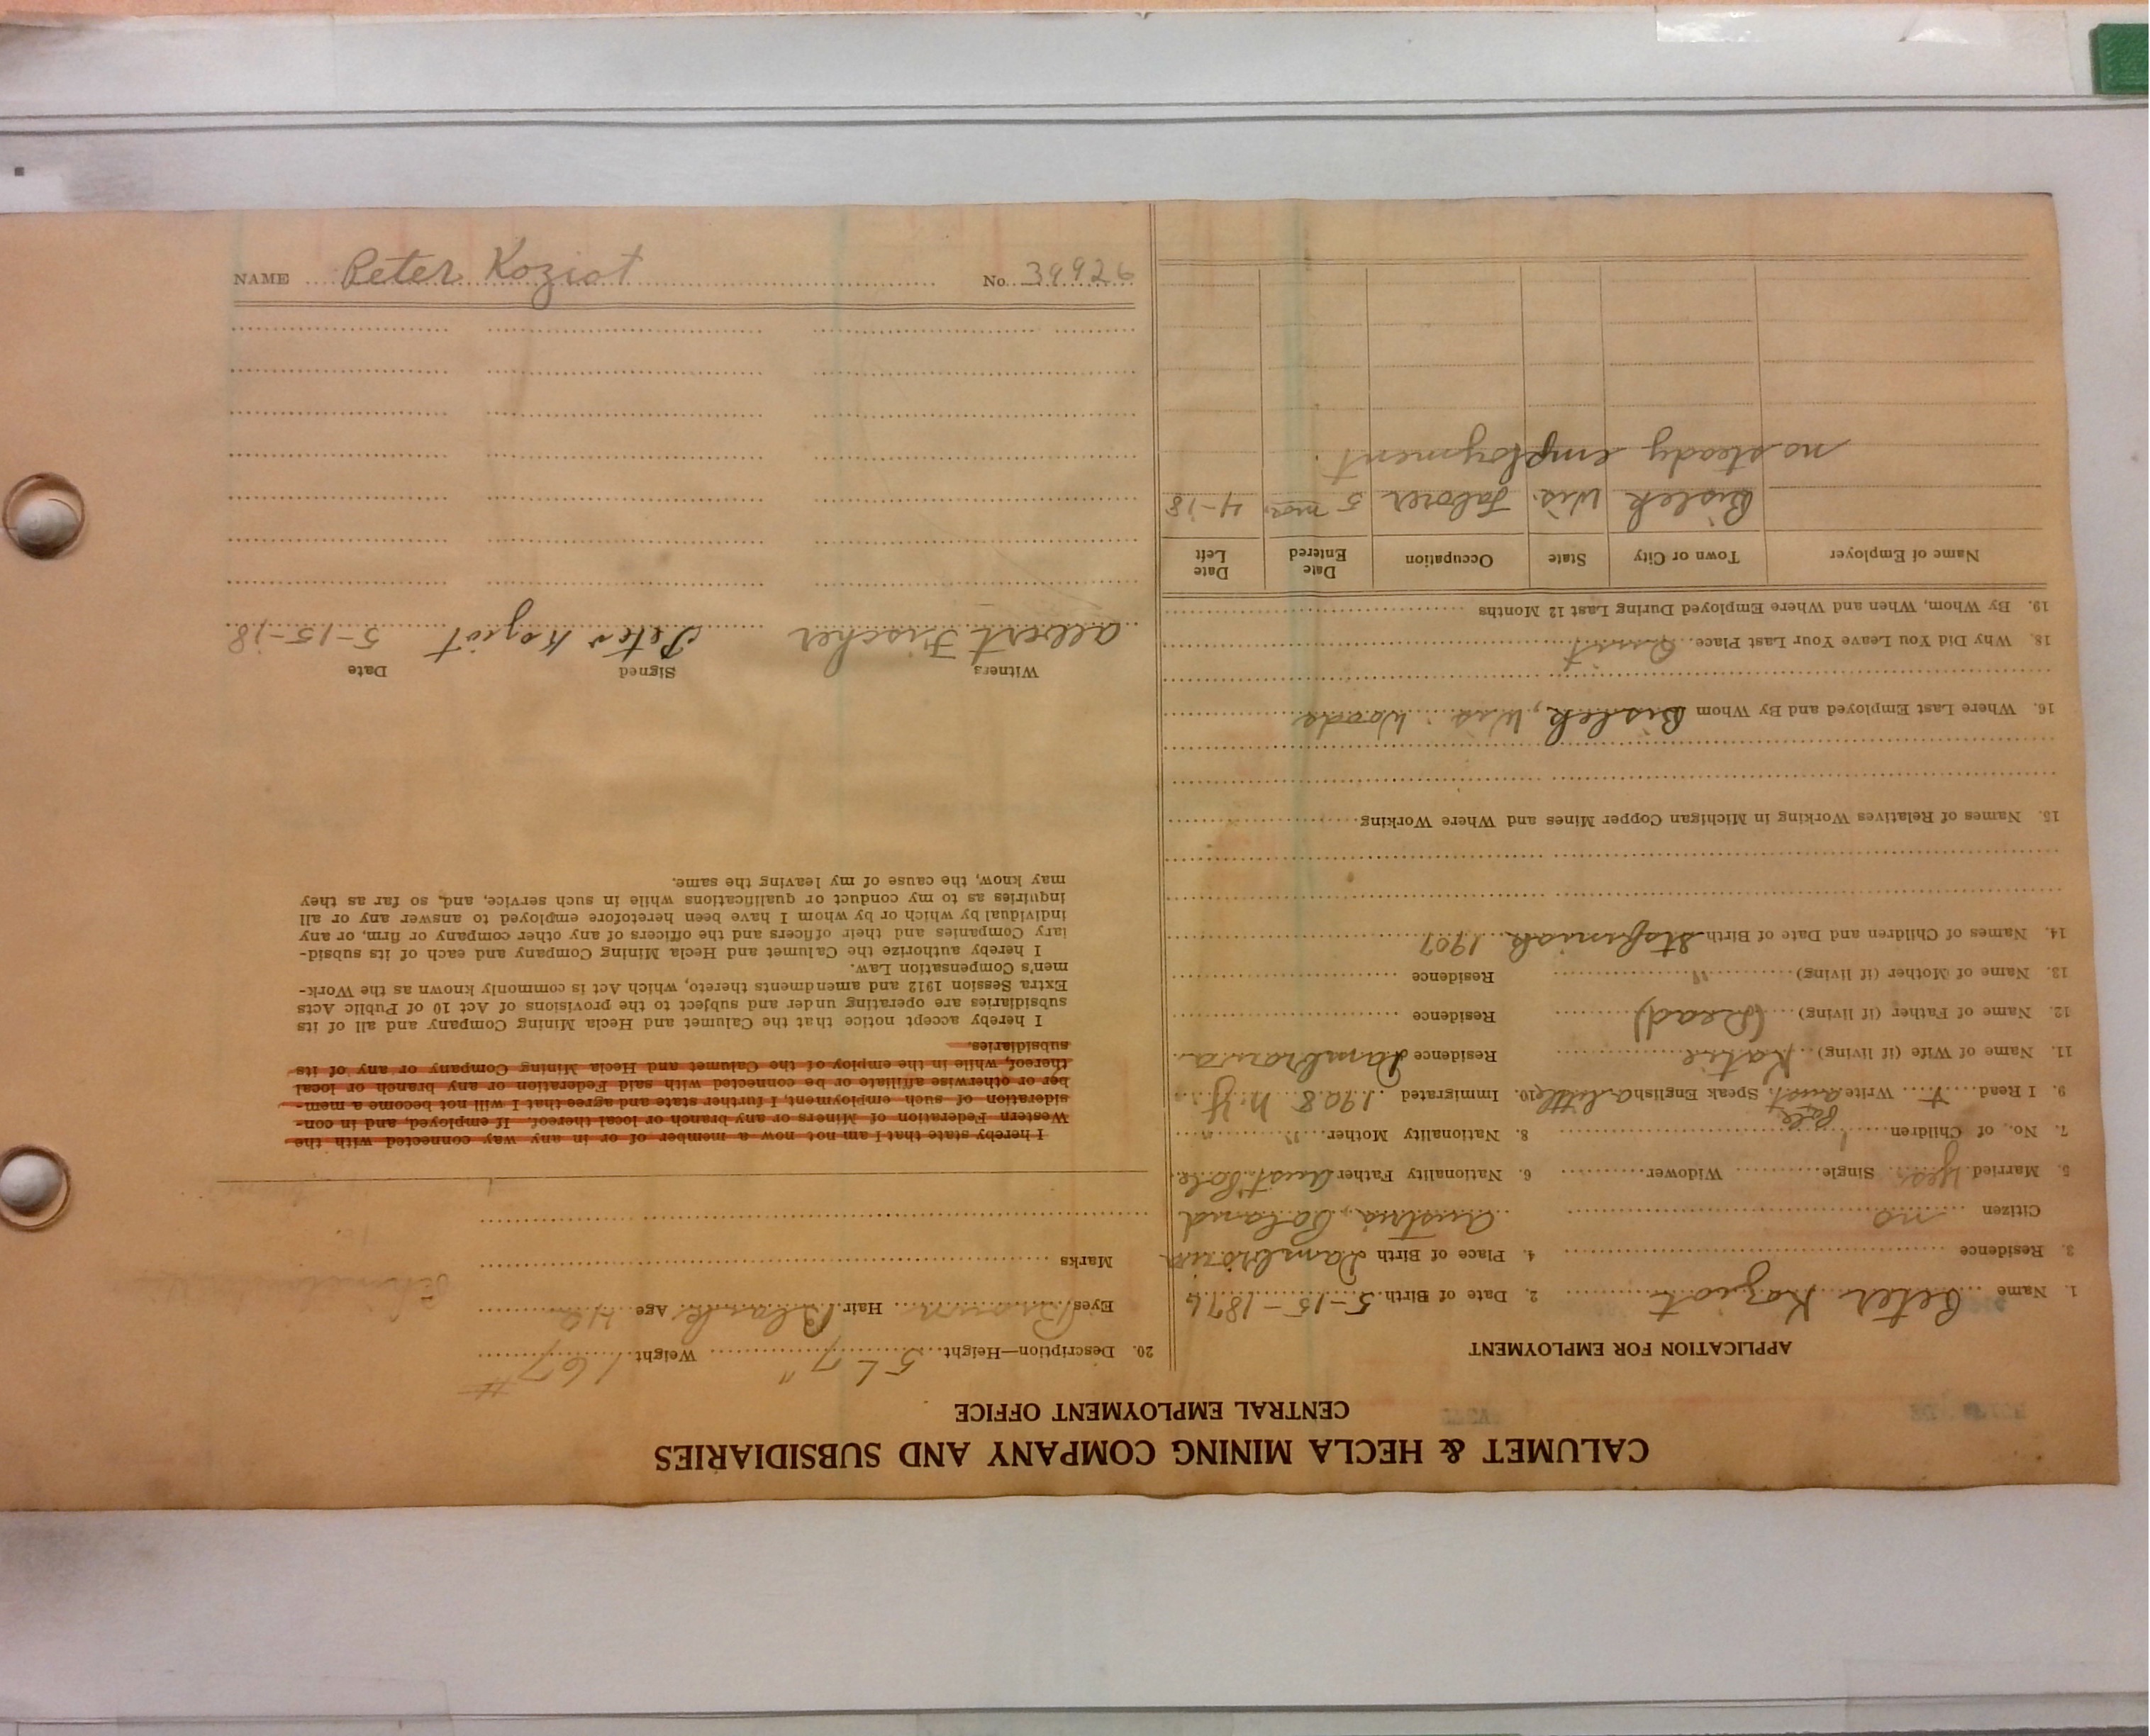 CALUMET & HECLA MINING COMPANY AND SUBSIDIARIES
CENTRAL EMPLOYMENT OFFICE
APPLICATION FOR EMPLOYMENT
1. Name Peter Koziot 2. Date of Birth 5-15-1876
3. Residence 4. Place of Birth
Citizen no Austria, Poland
5. Married Yes Single Widower 6. Nationality Father Aust. Pole
7. No. of Children 1 8. Nationality Mother " "
9. I Read + Write Aust. Pole Speak English a little 10. Immigrated 1908 N.Y.
11. Name of Wife (if living) Katie Residence
12. Name of Father (if living) (Dead) Residence
13. Name of Mother (if living) " Residence
14. Names of Children and Date of Birth 1907
15. Names of Relatives Working in Michigan Copper Mines and Where Working
16. Where Last Employed and By Whom Bislek, Wis. Woods
18. Why Did You Leave Your Last Place
19. By Whom, When and Where Employed During Last 12 Months
Name of Employer Town or City State Occupation Date Entered Date Left
Bislek Wis. Laborer 5 mos. 4-18
no steady employment.
20. Description—Height 5 L 7" Weight 167#
Eyes Brown Hair Black Age 42
Marks
I hereby state that I am not now a member of or in any way connected with the
Western Federation of Miners or any branch or local thereof. If employed, and in con-
sideration of such employment, I further state and agree that I will not become a mem-
ber or otherwise affiliate or be connected with said Federation or any branch or local
thereof, while in the employ of the Calumet and Hecla Mining Company or any of its
subsidiaries.
I hereby accept notice that the Calumet and Hecla Mining Company and all of its
subsidiaries are operating under and subject to the provisions of Act 10 of Public Acts
Extra Session 1912 and amendments thereto, which Act is commonly known as the Work-
men's Compensation Law.
I hereby authorize the Calumet and Hecla Mining Company and each of its subsid-
iary Companies and their officers and the officers of any other company or firm, or any
individual by which or by whom I have been heretofore employed to answer any or all
inquiries as to my conduct or qualifications while in such service, and, so far as they
may know, the cause of my leaving the same.
Witness Signed Date
Albert Fischer Peter Koziot 5-15-18
NAME Peter Koziot No. 39926